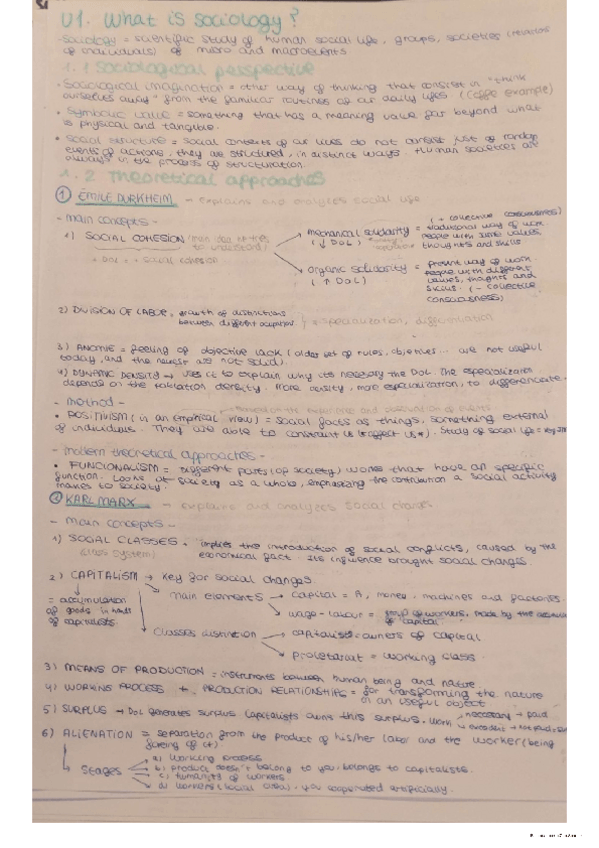 U1. What is sociology?
-Sociology = scientific study of human social life, groups, societies
of individuals) of micro and macroevents
1.1 Sociological perspective
• Sociological imagination = other way of thinking that consist in "think
ourselves away" from the familiar routines of our daily lifes (example)
• Symbolic value = something that has a meaning value far beyond what
is physical and tangible.
• Social structure = social contexts of our lives do not consist just of random
events of actions, they are structured, in distinct ways. Human societies are
always in the process of structuration.
1.2 Theoretical approaches
① ÉMILE DURKHEIM - explains and analyzes social life
- main concepts -
1) SOCIAL COHESION (main idea
mechanical solidarity = traditional way of work
(↓ DoL) people with same values,
thoughts and skills
(+ collective consciousness)
organic solidarity = present way of work
(↑ DoL) people with different
values, thoughts and
skills. (- collective
consciousness)
2) DIVISION OF LABOR, growth of distinctions
between different occupation.
3) ANOMIE = feeling of objective lack (older set of rules, objetives... are not useful
today, and the newest are not solid).
4) DYNAMIC DENSITY → uses it to explain why its necessary the DoL. The especialization
depends on the density. More density, more especialization, to differenciate.
- method -
• POSITIVISM (in an empirical view) = social facts as things, something external
of individuals. They are able to constraint us (affect us). Study of social life =
- modern theoretical approaches -
• FUNCIONALISM = different parts (of society) works that have an specific
function. Looks at society as a whole, emphasizing the contribution a social activity
makes to society.
② KARL MARX - explains and analyzes social change
- main concepts -
1) SOCIAL CLASSES = implies the introduction of social conflicts, caused by the
(class system) economical fact. Its influence brought social changes.
2) CAPITALISM → Key for social changes
= accumulation
of goods in hands
of capitalists
main elements → capital = A, money, machines and factories.
→ wage-labour = group of workers,
of capital
classes distinction → capitalist = owners of capital
→ proletariat = working class
3) MEANS OF PRODUCTION = instruments between human being and nature
4) WORKING PROCESS + PRODUCTION RELATIONSHIPS = for transforming the nature
in an useful object
5) SURPLUS → DoL generates surplus capitalists owns this surplus. Work necessary → paid
6) ALIENATION = separation from the product of his/her labor and the worker (being
↳ Stages
a) Working process
b) product doesn't belong to you, belongs to capitalists.
c) humanity of workers
d) workers (social area), you cooperated artificially.